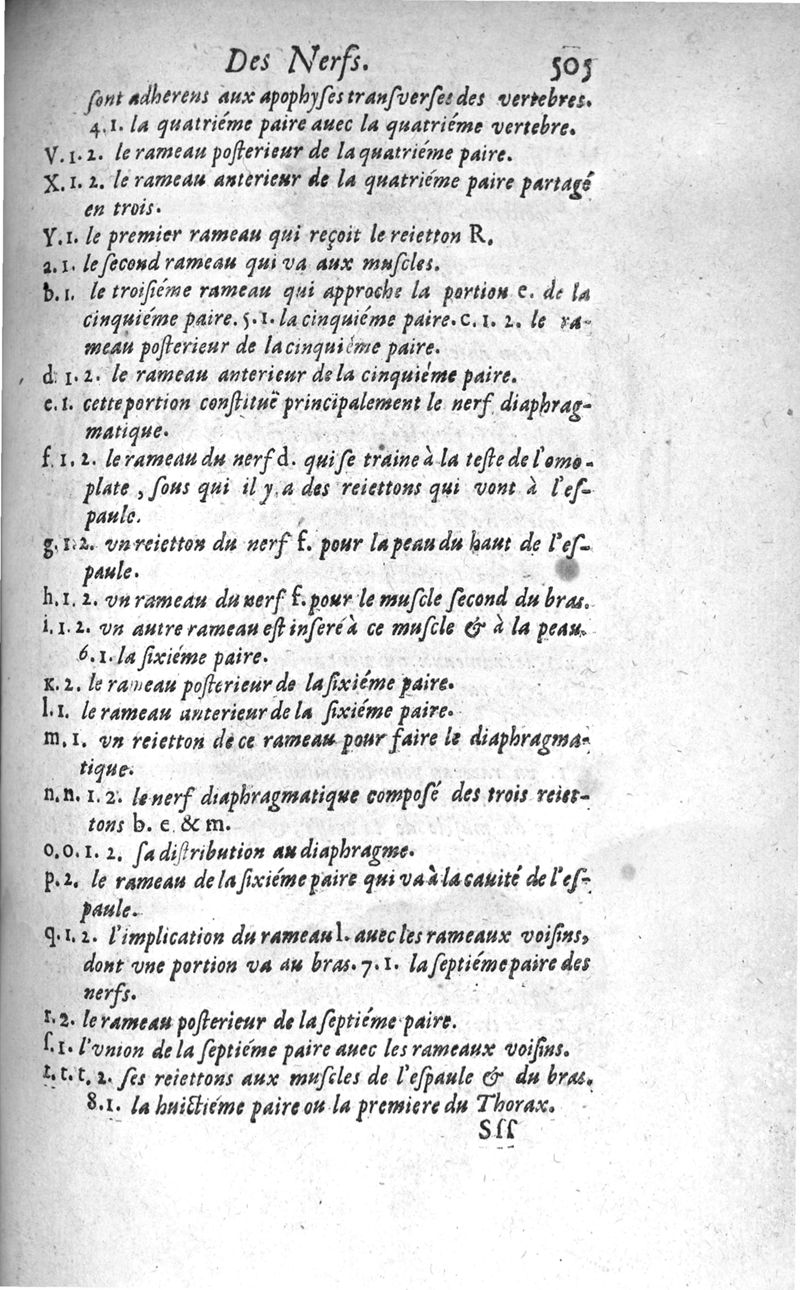 Des Nerfs. 505
ſont adherens aux apophyſes tranſverſes des vertebres.
4.1. la quatriéme paire auec la quatriéme vertebre.
V.1.2. le rameau poſterieur de la quatriéme paire.
X.1.2. le rameau anterieur de la quatriéme paire partagé
en trois.
Y.1. le premier rameau qui reçoit le reietton R.
a.1. le ſecond rameau qui va aux muſcles.
b.1. le troiſiéme rameau qui approche la portion e. de la
cinquiéme paire. 5.1. la cinquiéme paire. c.1.2. le ra-
meau poſterieur de la cinquiéme paire.
d.1.2. le rameau anterieur de la cinquiéme paire.
e.1. cette portion conſtituë principalement le nerf diaphrag-
matique.
f.1.2. le rameau du nerf d. qui ſe traine à la teſte de l'omo-
plate, ſous qui il y a des reiettons qui vont à l'eſ-
paule.
g.1.2. vn reietton du nerf f. pour la peau du haut de l'eſ-
paule.
h.1.2. vn rameau du nerf f. pour le muſcle ſecond du bras.
i.1.2. vn autre rameau eſt inſeré à ce muſcle & à la peau.
6.1. la ſixiéme paire.
K.2. le rameau poſterieur de la ſixiéme paire.
l.1. le rameau anterieur de la ſixiéme paire.
m.1. vn reietton de ce rameau pour faire le diaphragma-
tique.
n.n.1.2. le nerf diaphragmatique compoſé des trois reiet-
tons b. e & m.
o.o.1.2. ſa diſtribution au diaphragme.
p.2. le rameau de la ſixiéme paire qui va à la cauité de l'eſ-
paule.
q.1.2. l'implication du rameau l. auec les rameaux voiſins,
dont vne portion va au bras. 7.1. la ſeptiéme paire des
nerfs.
r.2. le rameau poſterieur de la ſeptiéme paire.
ſ.1. l'vnion de la ſeptiéme paire auec les rameaux voiſins.
t.t.t.2. ſes reiettons aux muſcles de l'eſpaule & du bras.
8.1. la huictiéme paire ou la premiere du Thorax.
Sſſ